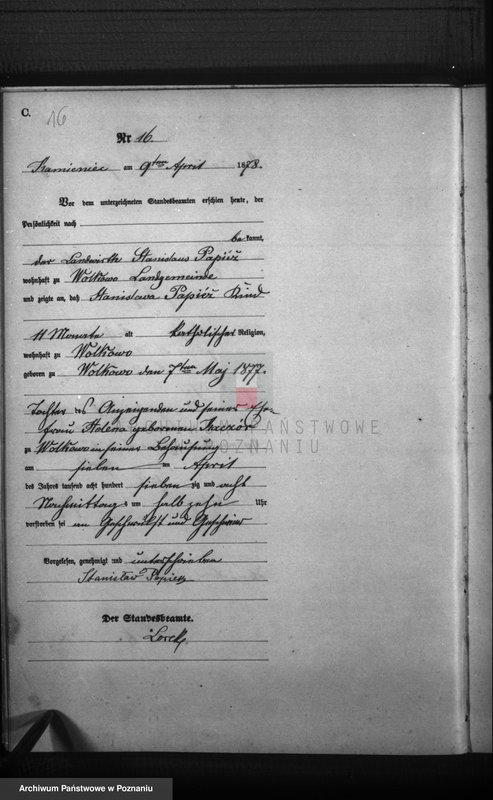 C.
16
Nr 16.
Kamieniec am 9ten April 1878.
Vor dem unterzeichneten Standesbeamten erschien heute, der
Persönlichkeit nach
bekannt,
der Landwirth Stanislaus Papież
wohnhaft zu Wolkowo Landgemeinde
und zeigte an, daß Stanislawa Papież Kind
11 Monate alt katholischer Religion,
wohnhaft zu Wolkowo
geboren zu Wolkowo den 7ten Maj 1877.
Tochter des Anzeigenden und seiner Ehe-
frau Helena geborenen
zu Wolkowo in seiner Behausung
am sieben ten April
des Jahres tausend acht hundert siebenzig und acht
Nachmittags um halb zehn Uhr
verstorben sei an Geschwulst und
Vorgelesen, genehmigt und unterschrieben
Stanisław Papież
Der Standesbeamte.
Lorek
PAŃSTWOWE
POZNANIU
Archiwum Państwowe w Poznaniu